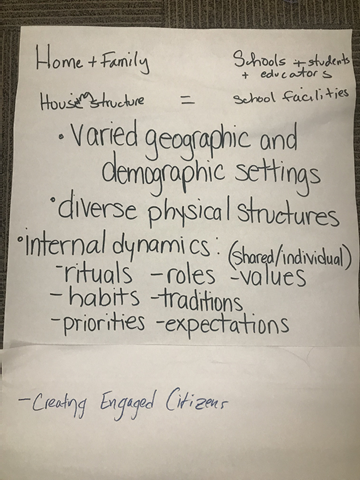 Home + Family
Schools + students
+ educators
Housing structure = school facilities
• Varied geographic and
demographic settings
• diverse physical structures
• internal dynamics: (shared/individual)
- rituals - roles - values
- habits - traditions
- priorities - expectations
- Creating Engaged Citizens